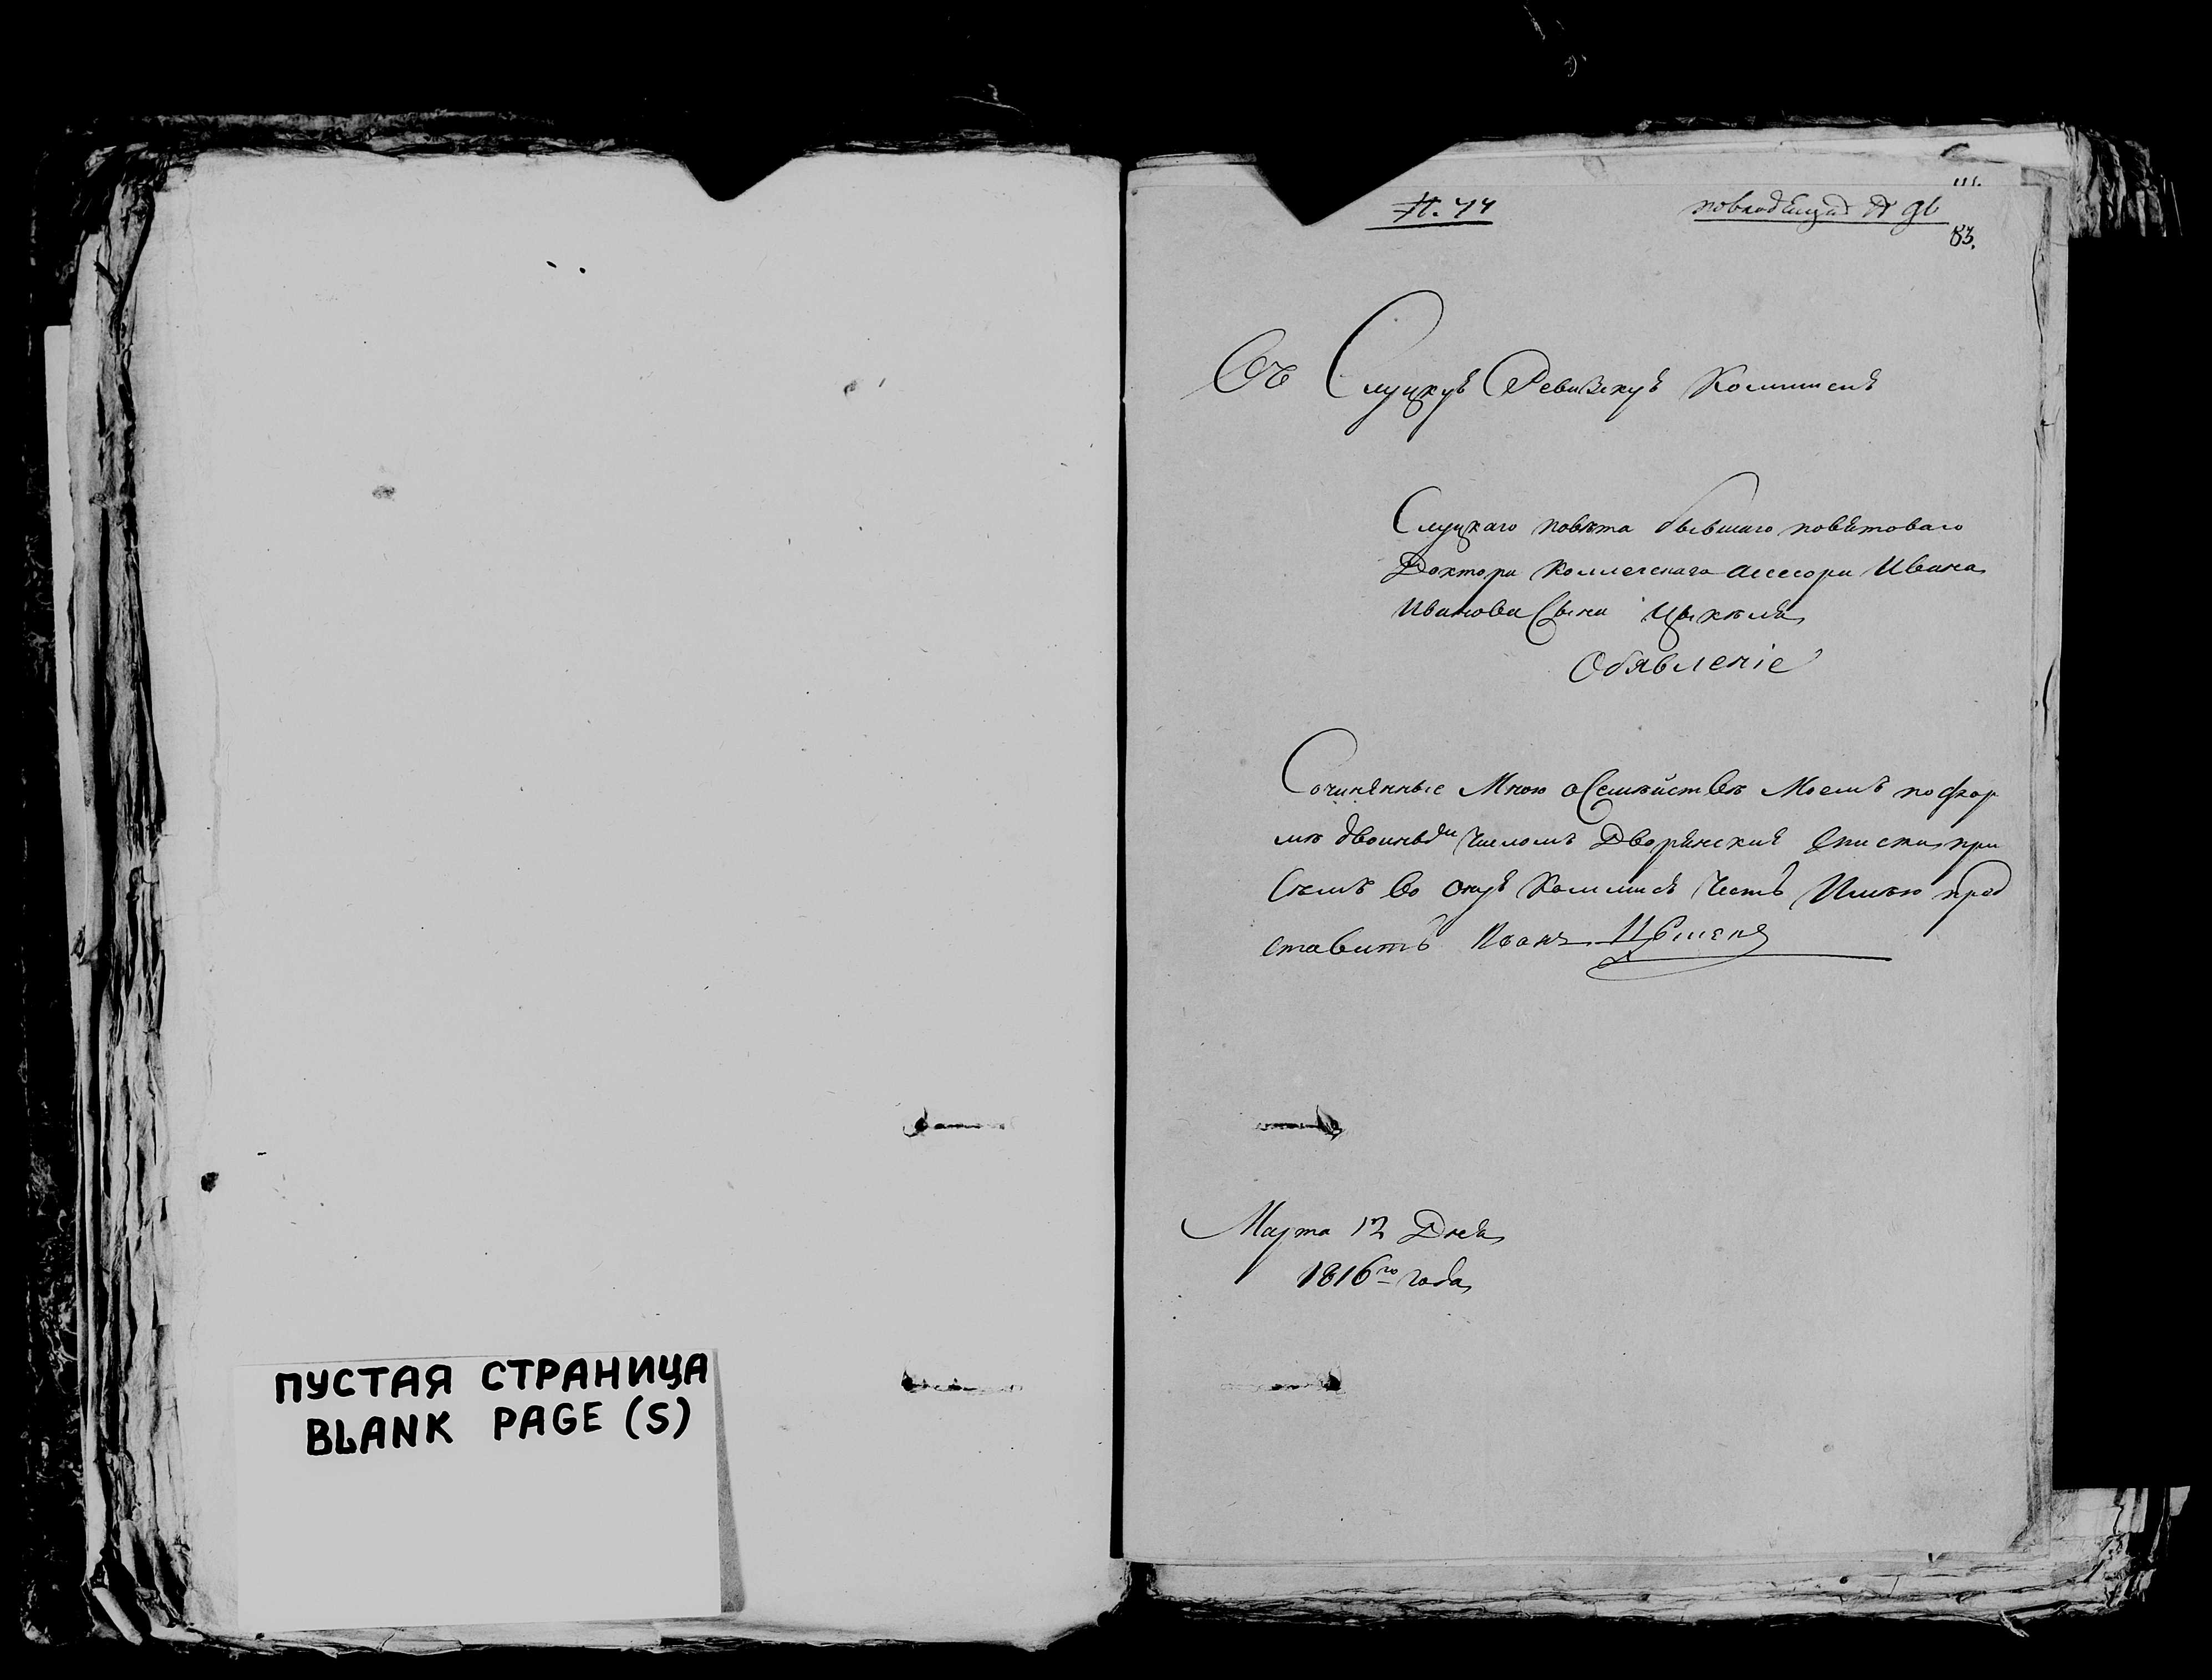 ПУСТАЯ СТРАНИЦА
BLANK PAGE (S)
83.
Въ Слуцкую Ревизскую Коммисию
Слуцкаго повѣта бывшаго повѣтоваго
Доктора Коллегскаго асесора Ивана
Иванова Сына
Обявленіе
Сочинянные Мною о Семѣйствѣ Моемъ по фор
мѣ числомъ Дворянские при
Семъ во оную Коммисию Честь Имѣю пред
ставить Иванъ
Марта 12 Дня
1816го года